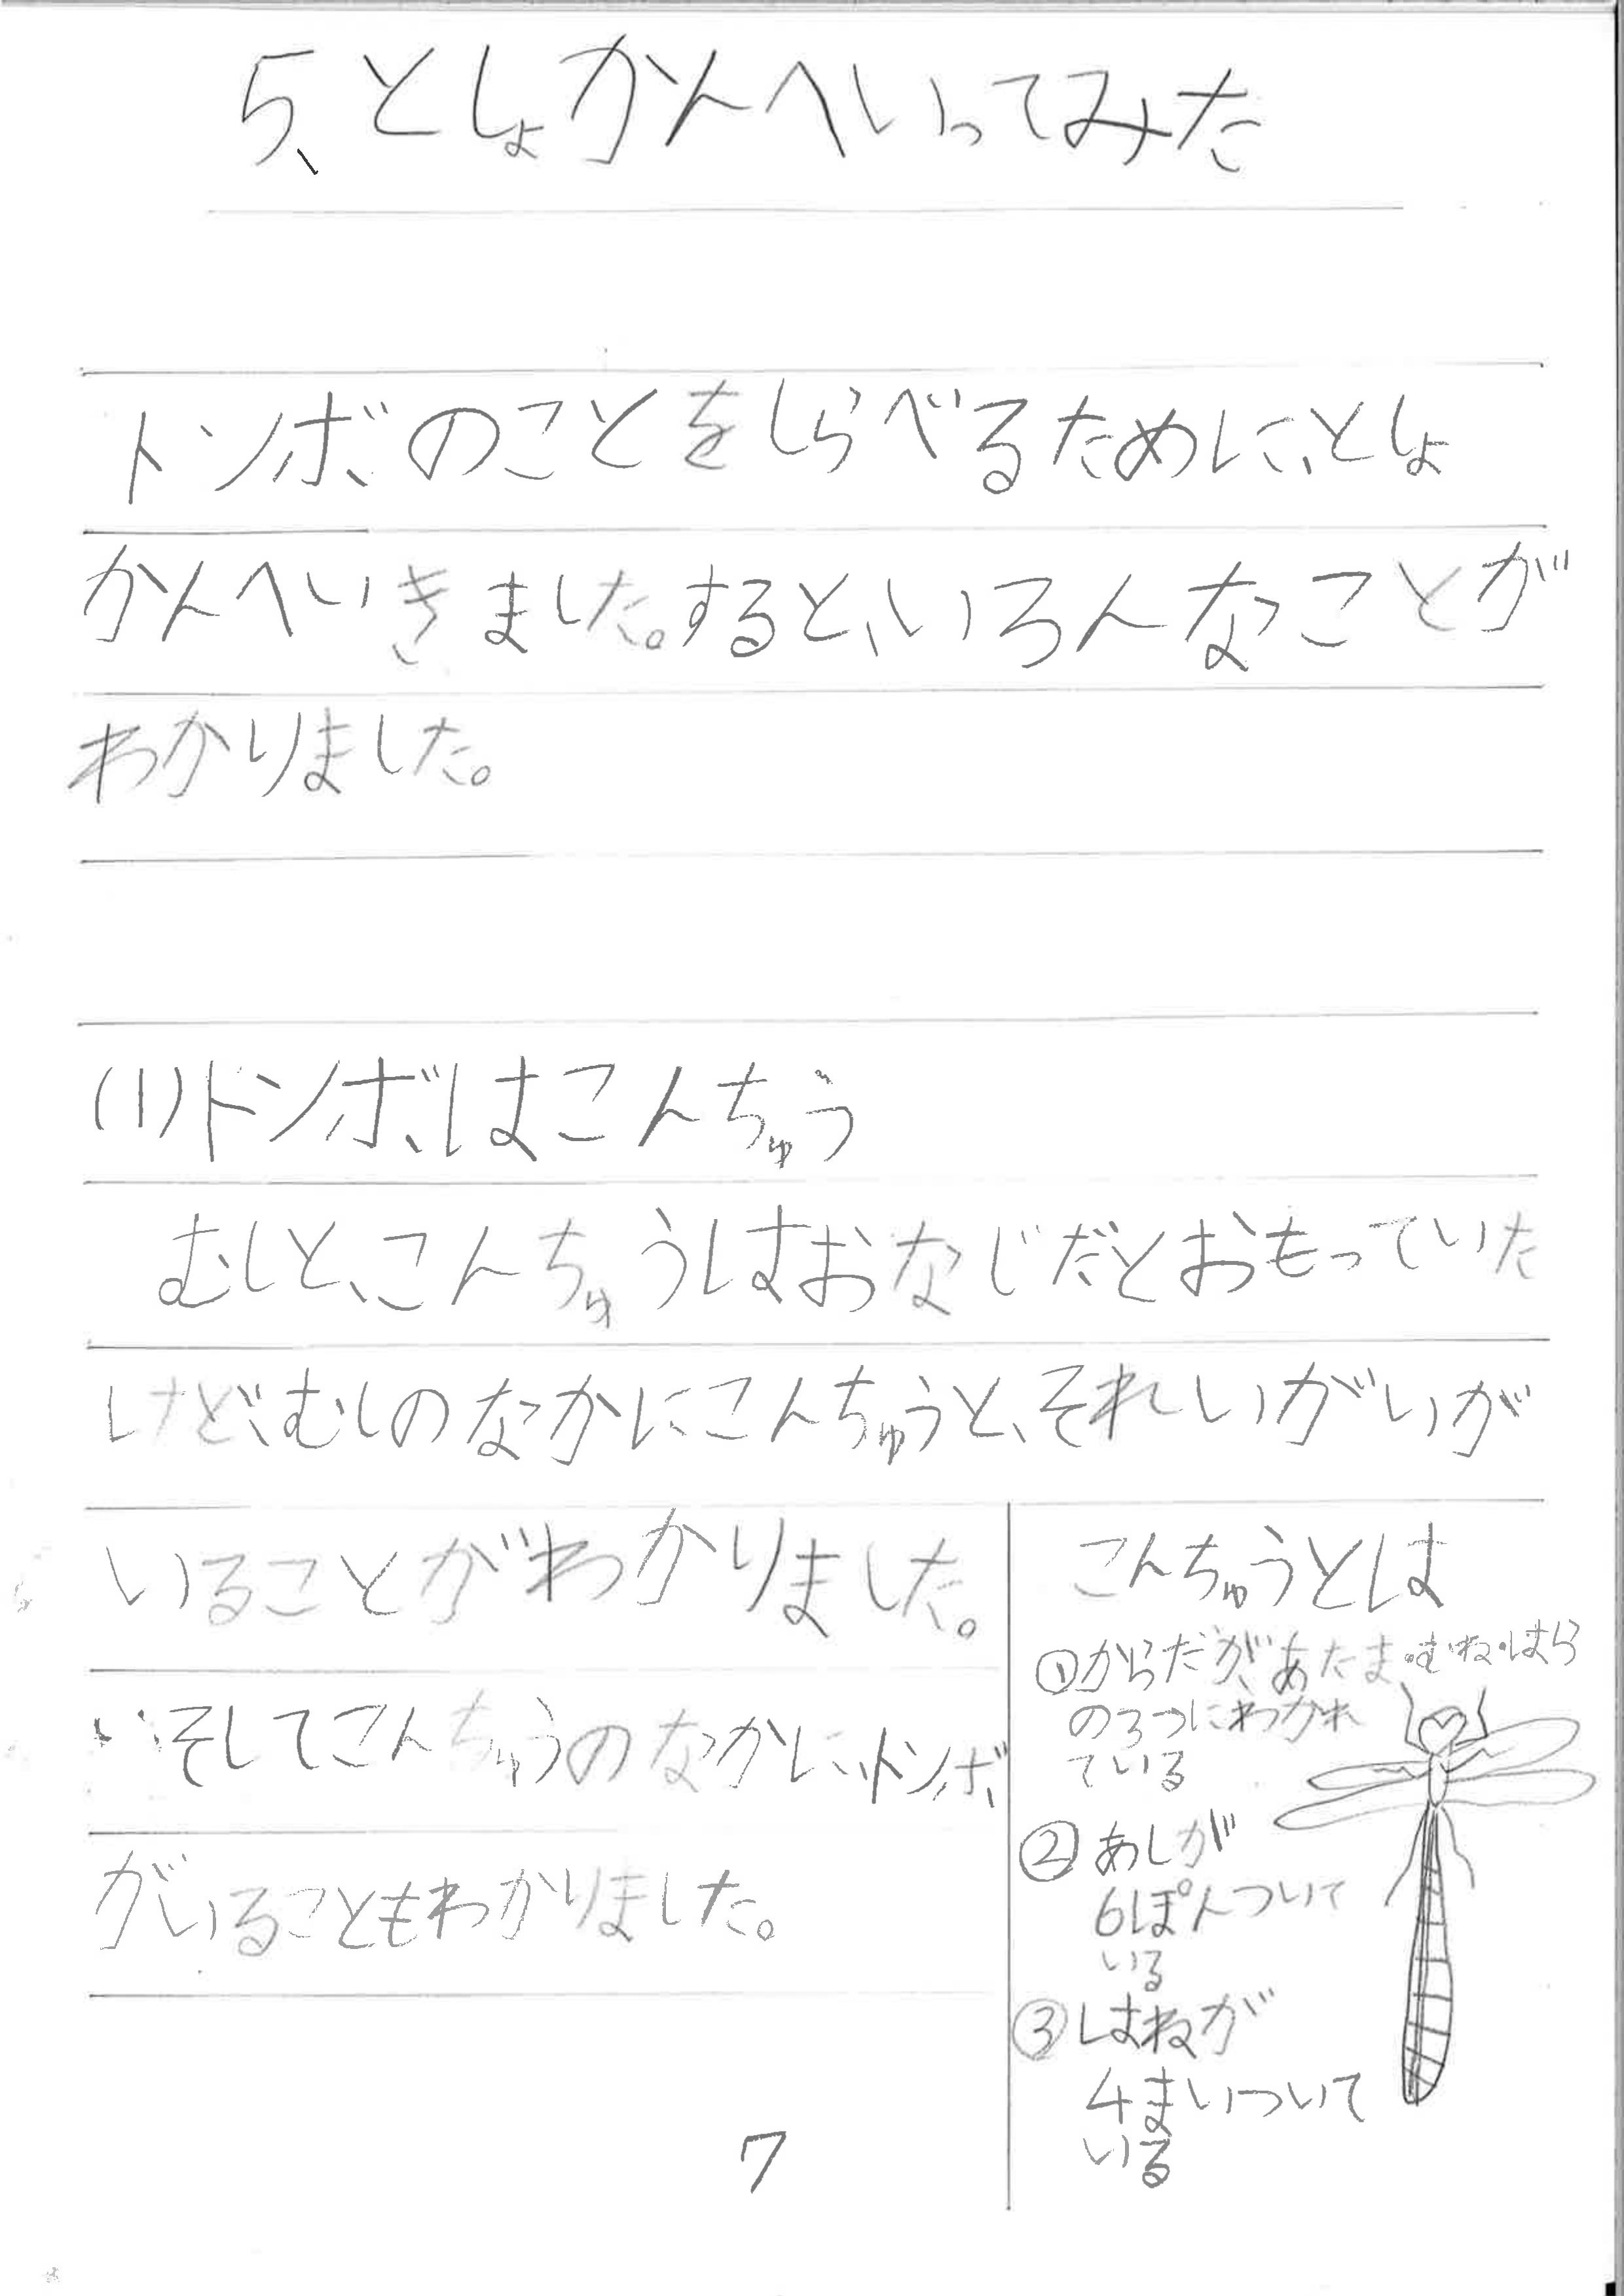 5、としょかんへいってみた
トンボのことをしらべるために、としょ
かんへいきました。すると、いろんなことが
わかりました。
(1)トンボはこんちゅう
むしと、こんちゅうはおなじだとおもっていた
けど、むしのなかにこんちゅうと、それいがいが
いることがわかりました。
そしてこんちゅうのなかに、トンボ
がいることもわかりました。
こんちゅうとは
①からだが、あたま・むね・はら
の3つにわかれ
ている
②あしが
6ぽんついて
いる
③はねが
4まいついて
いる
7